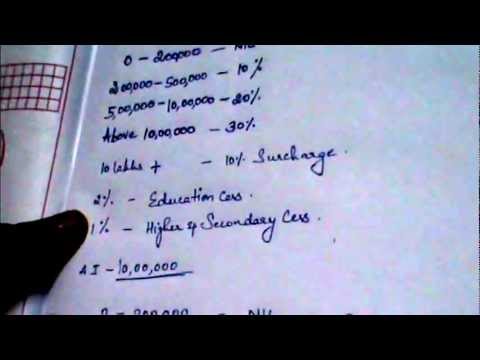 0 - 200000 - Nil
200,000 - 500,000 - 10%
5,00,000 - 10,00,000 - 20%
Above 10,00,000 - 30%
10 lakhs + - 10% Surcharge.
2% - Education Cess.
1% - Higher & Secondary Cess.
A I - 10,00,000
0 - 200,000 - Nil